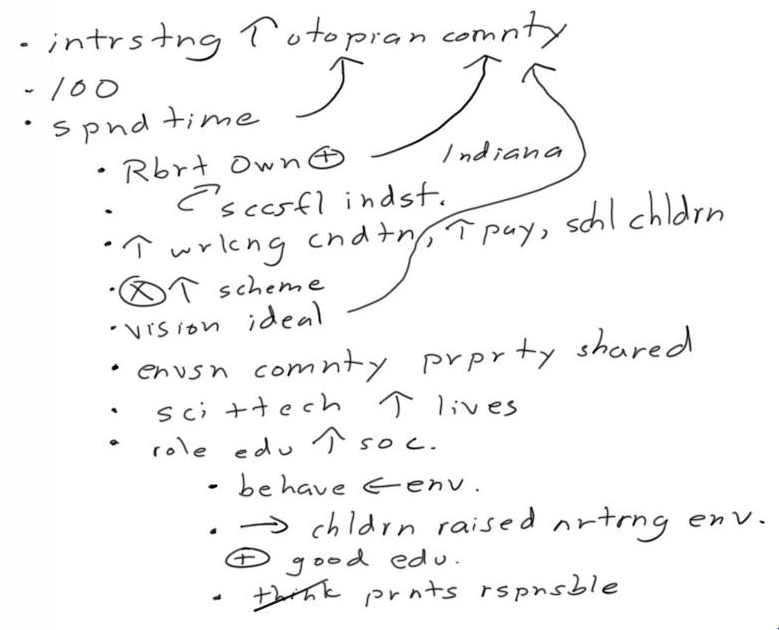 • intrstng ↑ utopian comnty
- 100
• spnd time
• Rbrt Own ⊕
Indiana
• sccsfl indst.
• ↑ wrkng cndtn, ↑ pay, schl chldrn
• ⊗ ↑ scheme
• vision ideal
• envsn comnty prprty shared
• sci + tech ↑ lives
• role edu ↑ soc.
• behave ← env.
• → chldrn raised nrtrng env.
⊕ good edu.
• think prnts rspnsble